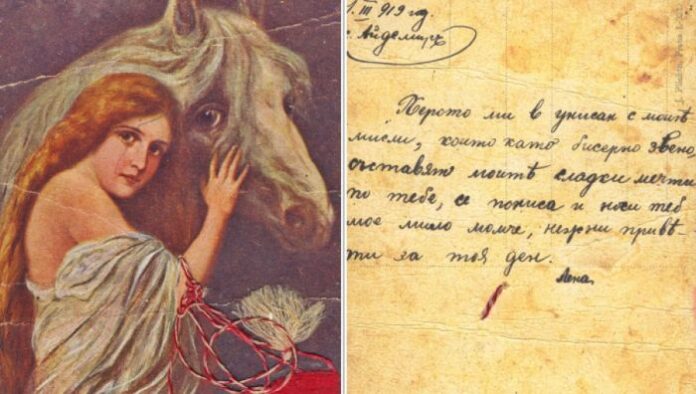 1. III 919 год.
с. Айдемиръ
Перото ми в унисан с моитѣ
мисли, които като бисерно звено
съставят моитѣ сладки мечти
по тебе, се понися и носи теб
мое мило момче, нежни привѣ-
ти за тоя ден.
Лена